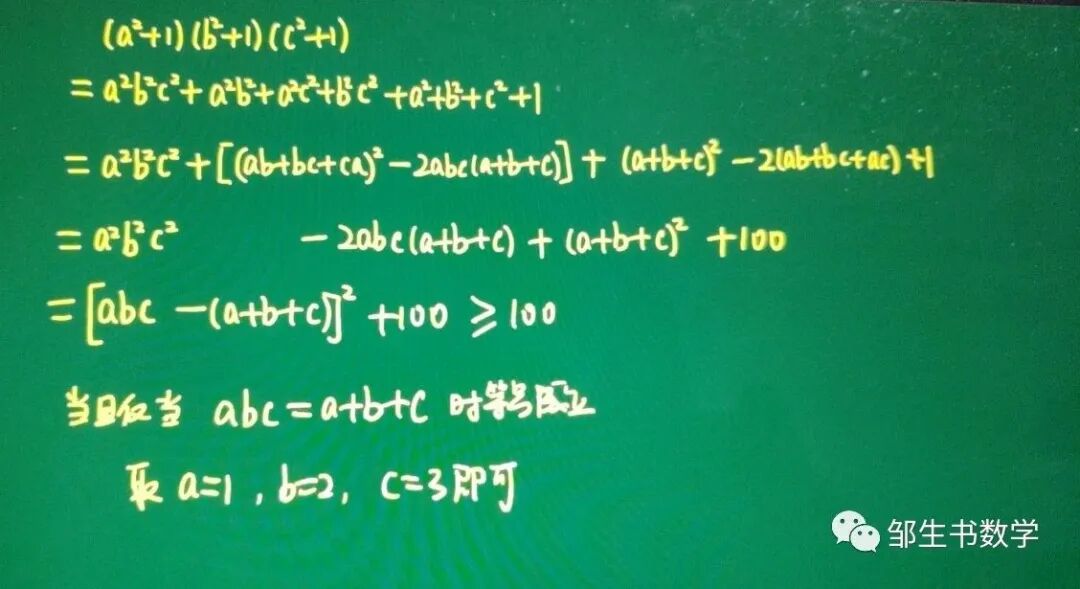 (a²+1)(b²+1)(c²+1)
=a²b²c²+a²b²+a²c²+b²c²+a²+b²+c²+1
=a²b²c²+[(ab+bc+ca)²-2abc(a+b+c)]+(a+b+c)²-2(ab+bc+ac)+1
=a²b²c² -2abc(a+b+c)+(a+b+c)²+100
=[abc-(a+b+c)]²+100≥100
当且仅当 abc=a+b+c 时等号成立
取 a=1,b=2,c=3即可
邹生书数学